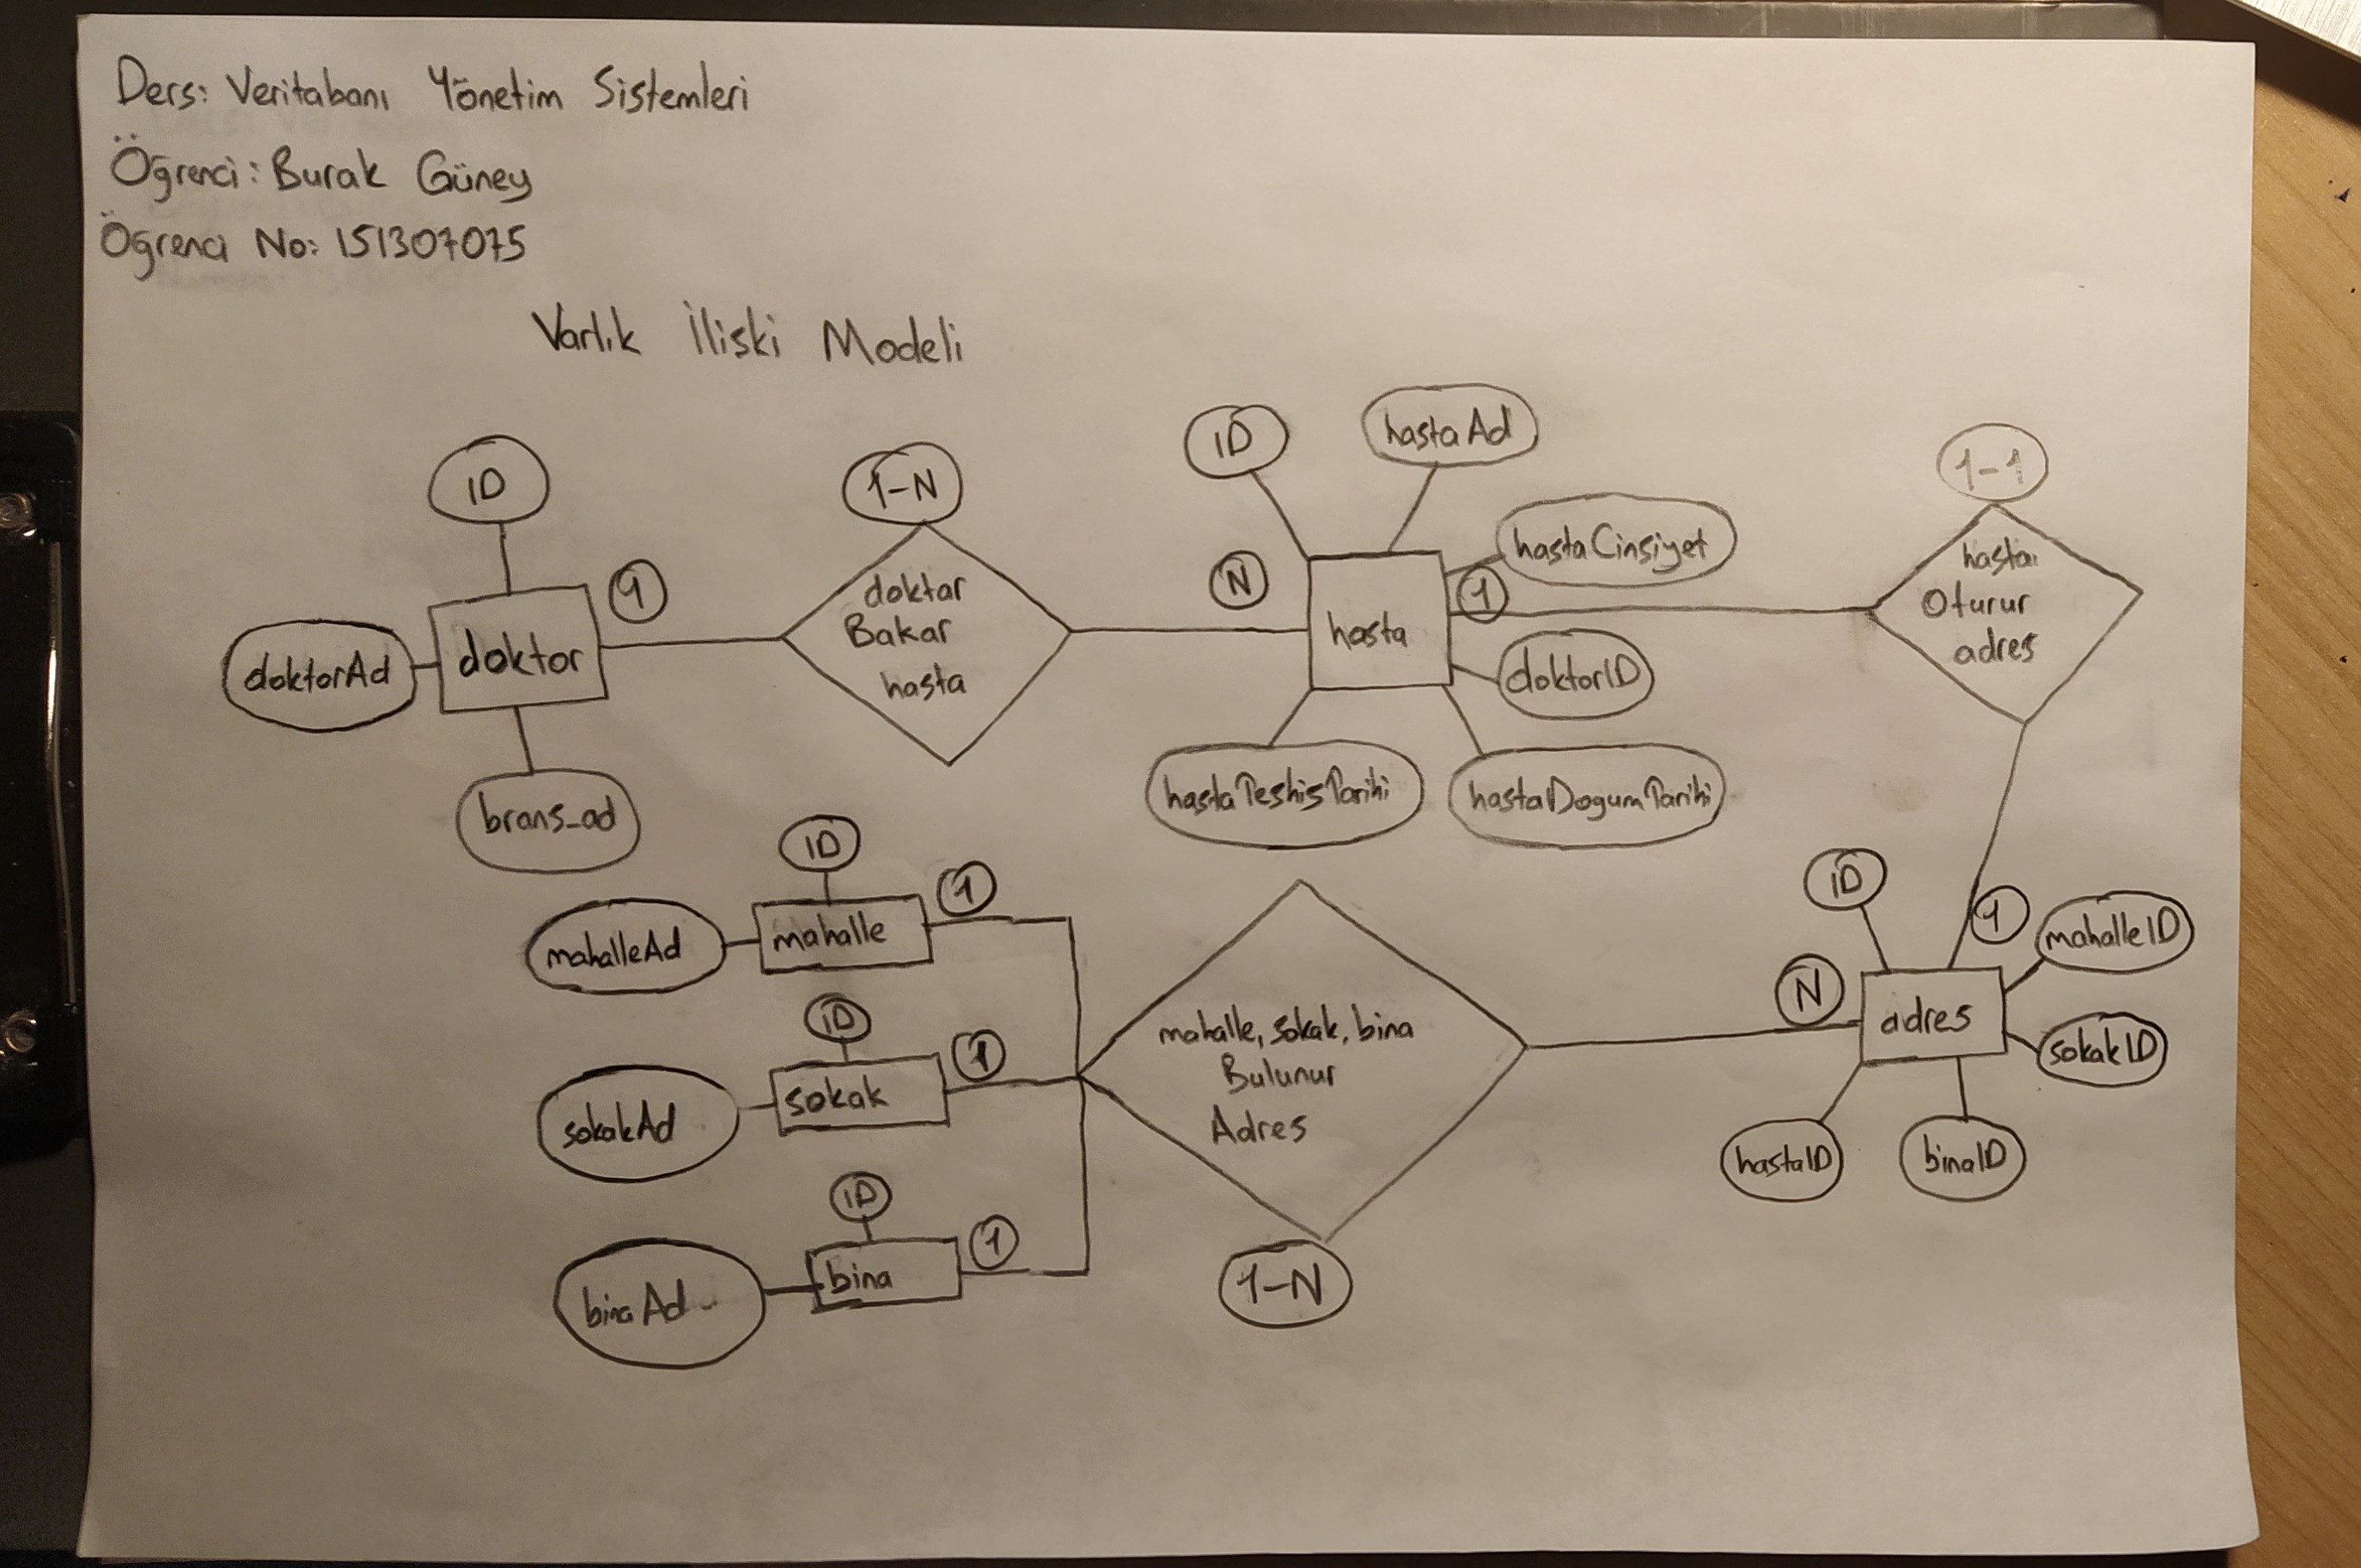 Ders: Veritabanı Yönetim Sistemleri
Öğrenci: Burak Güney
Öğrenci No: 151307075
Varlık İliski Modeli
ID
1-N
ID
hastaAd
1-1
doktorAd
doktor
1
doktar
Bakar
hasta
N
hasta
hastaCinsiyet
1
doktorID
hasta
Oturur
adres
brans_ad
hastaTeshisTarihi
hastaDogumTarihi
ID
mahalleAd
mahalle
1
ID
sokakAd
sokak
1
ID
binaAd
bina
1
mahalle, sokak, bina
Bulunur
Adres
1-N
N
ID
1
adres
mahalleID
sokakID
hastaID
binaID